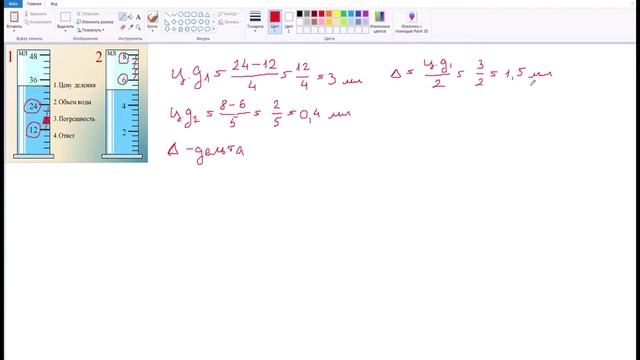 Файл Главная Вид
Вставить
Выделить
Обрезать
Изменить размер
Повернуть
Кисти
Толщина
Цвет 1
Цвет 2
Изменение цветов
Изменить с помощью Paint 3D
Буфер обмена Изображение Инструменты Фигуры Цвета
1 МЛ 48 36 24 12
1.Цену деления
2.Объем воды
3.Погрешность
4.Ответ
2 МЛ 8 6 4 2
ц.д1 = 24-12/4 = 12/4 = 3 мл
Δ = ц.д1/2 = 3/2 = 1,5 мл
ц.д2 = 8-6/5 = 2/5 = 0,4 мл
Δ - дельта